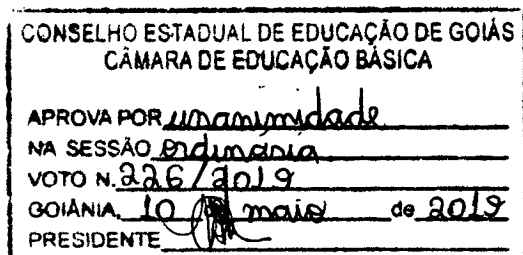 CONSELHO ESTADUAL DE EDUCAÇÃO DE GOIÁS
CÂMARA DE EDUCAÇÃO BÁSICA
APROVA POR unanimidade
NA SESSÃO ordinária
VOTO N. 226/2019
GOIÂNIA 10 maio de 2019
PRESIDENTE